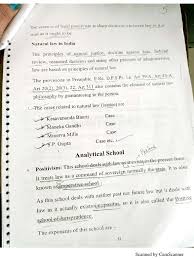 the extent of
as it ought to be.
Natural law in India
The principles of natural justice, doctrine against bias,
review, reasoned decisions and many other principles of administrative
law are based on principles of natural law.
The provisions in Preamble, F.Rs. D.P.S.P. i.e. Art 39-A,
Art 20(2), 20(3), 22, Art 311 also contains the element of natural
philosophy by guaranteeing to the person.
The cases related to natural law
Kesavananda Bharti Case
Maneka Gandhi Case
Minerva Mills Case
S.P. Gupta Case etc.
Analytical School
Positivism: This school deals with law as it exist in the present form.
It treats law as a command of sovereign normally the state. It is also
known
As this school deals with neither past nor future law but it deals with
law as it actually exists
school of
The exponents of this school are -
Scanned by CamScanner